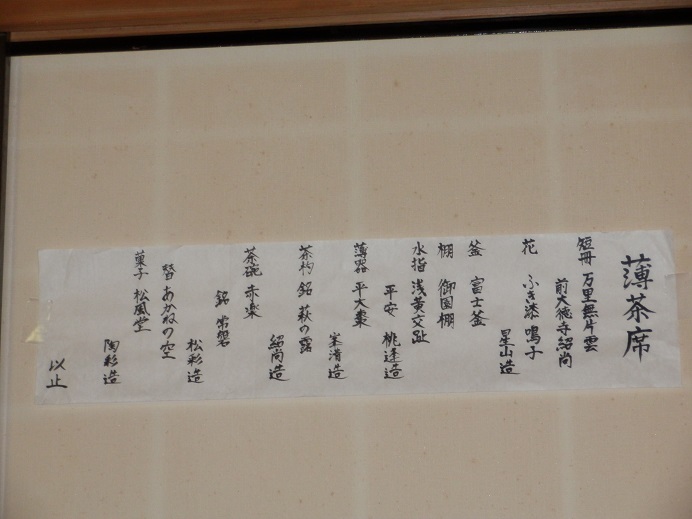 薄茶席
短冊 万里無片雲
前大徳寺紹尚
花 ふき漆 鳴子
星山造
釜 富士釜
棚 御園棚
水指 浅黄交趾
平安 桃逢造
薄器 平大棗
峯清造
茶杓 銘 萩の露
紹尚造
茶碗 赤楽
銘 常磐
松彩造
替 あかねの空
菓子 松風堂
陶彩造
以止